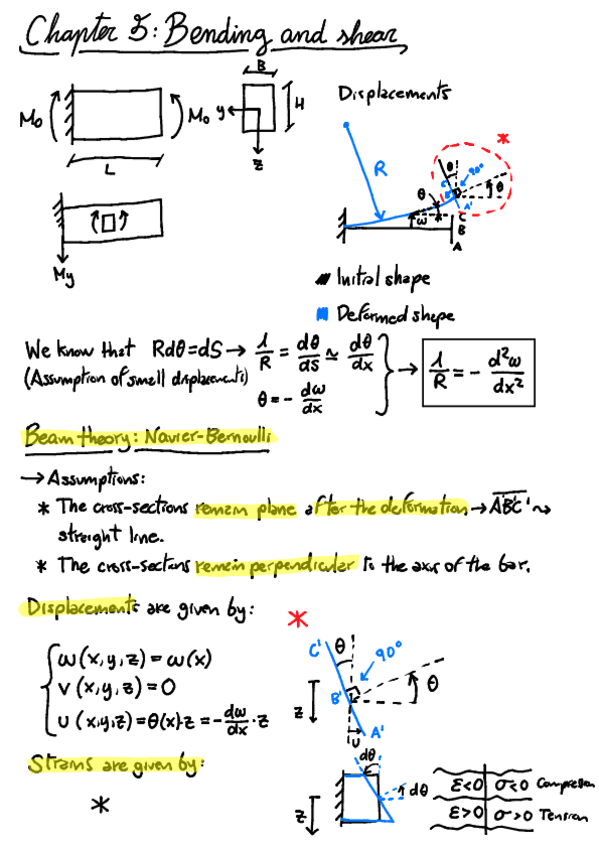 Chapter 5: Bending and shear
B
Mo
Mo
y
H
z
L
My
Displacements
R
θ
90°
*
θ
θ
C'
B'
A'
ω
C
B
A
Initial shape
Deformed shape
We know that Rdθ=dS → 1/R = dθ/ds ≃ dθ/dx
(Assumption of small displacements) θ = - dω/dx
→ 1/R = - d²ω/dx²
Beam theory: Navier-Bernoulli
→ Assumptions:
* The cross-sections remain plane after the deformation → A'B'C' ↝
streight line.
* The cross-sections remain perpendicular to the axis of the bar.
Displacements are given by:
*
ω(x,y,z) = ω(x)
v(x,y,z) = 0
u(x,y,z) = θ(x)·z = - dω/dx · z
C'
θ
90°
z
B'
θ
U
A'
Strains are given by:
*
dθ
z
dθ
ε<0 σ<0 Compression
ε>0 σ>0 Tension